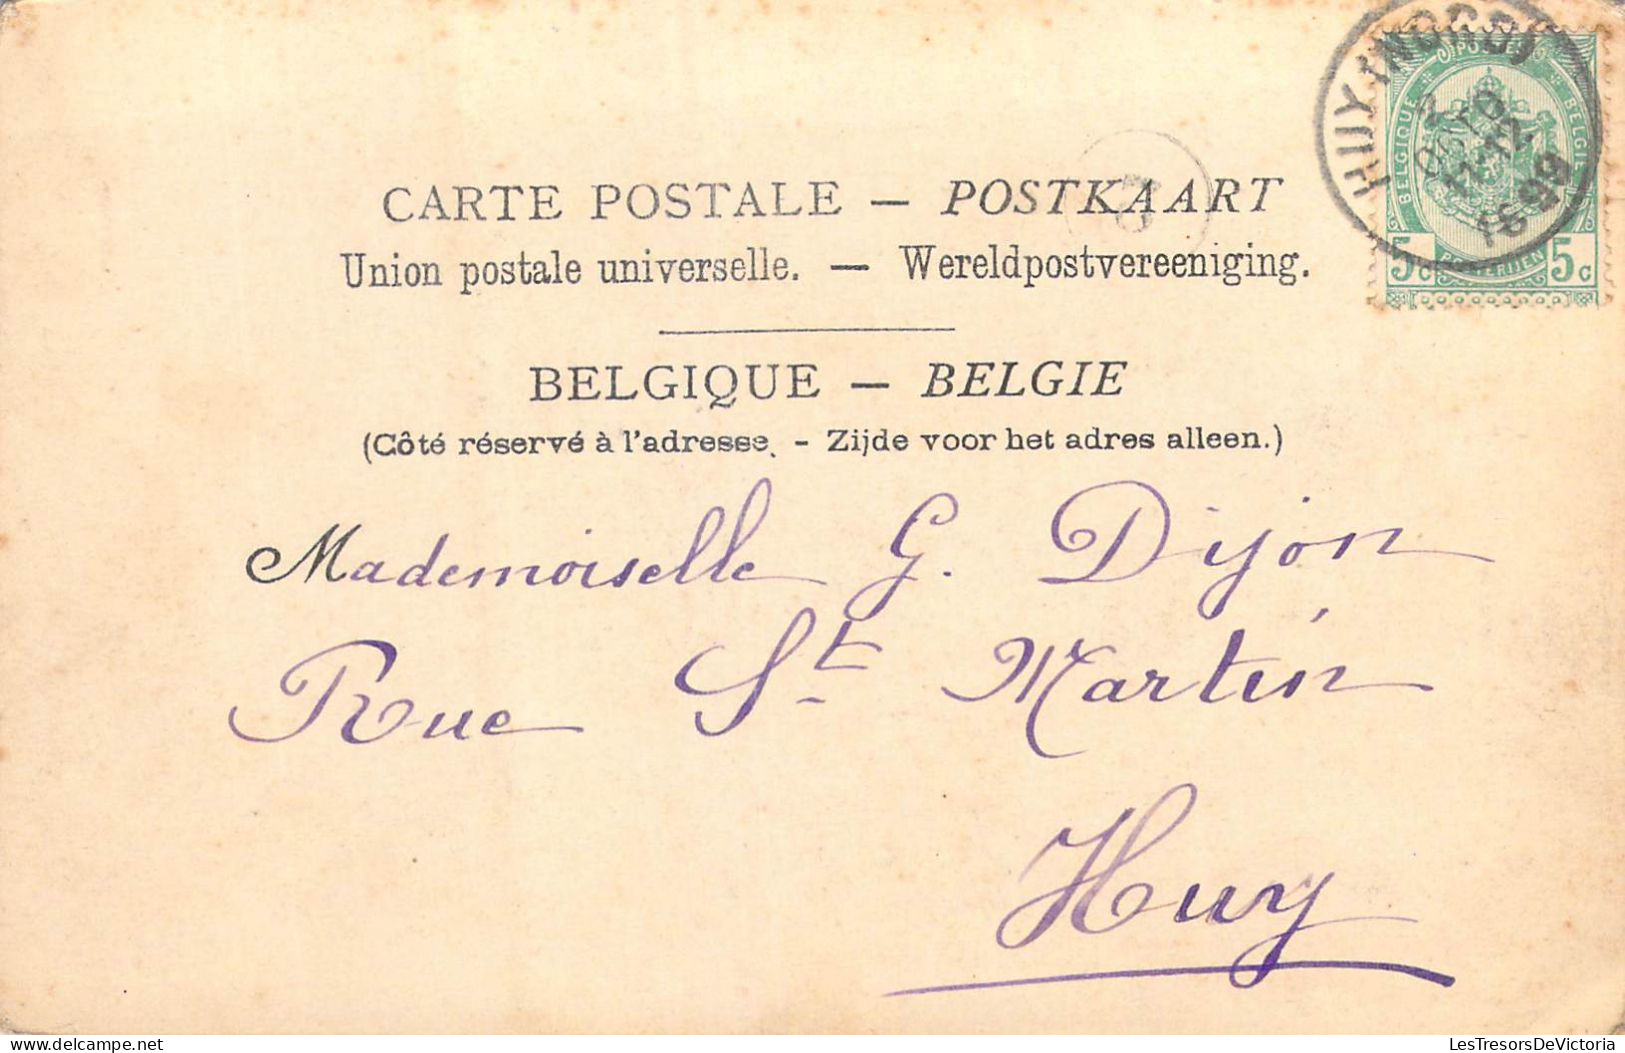 CARTE POSTALE — POSTKAART
Union postale universelle. — Wereldpostvereeniging.
BELGIQUE — BELGIE
(Côté réservé à l'adresse. - Zijde voor het adres alleen.)
Mademoiselle G. Dijon
Rue St Martin
Huy
HUY (NORD)
11-12
1899
POSTES
BELGIQUE
BELGIE
POSTERIJEN
5c 5c
LesTresorsDeVictoria
LesTresorsDeVictoria.com